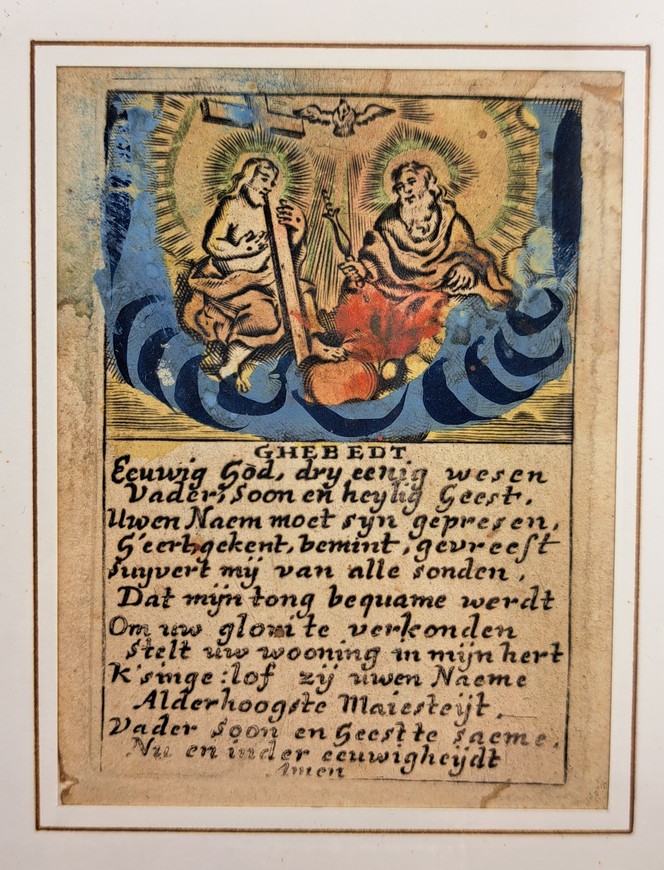 GHEBEDT
Eeuwig God, dry eenig wesen
Vader, Soon en heylig Geest,
Uwen Naem moet syn gepresen,
G'eert, gekent, bemint, gevreest
Suyvert mij van alle sonden,
Dat mijn tong bequame werdt
Om uw glori te verkonden
Stelt uw wooning in mijn hert
K'singe: lof zij uwen Naeme
Alderhoogste Maiesteijt,
Vader Soon en Geest te saeme,
Nu en inder eeuwigheijdt
Amen